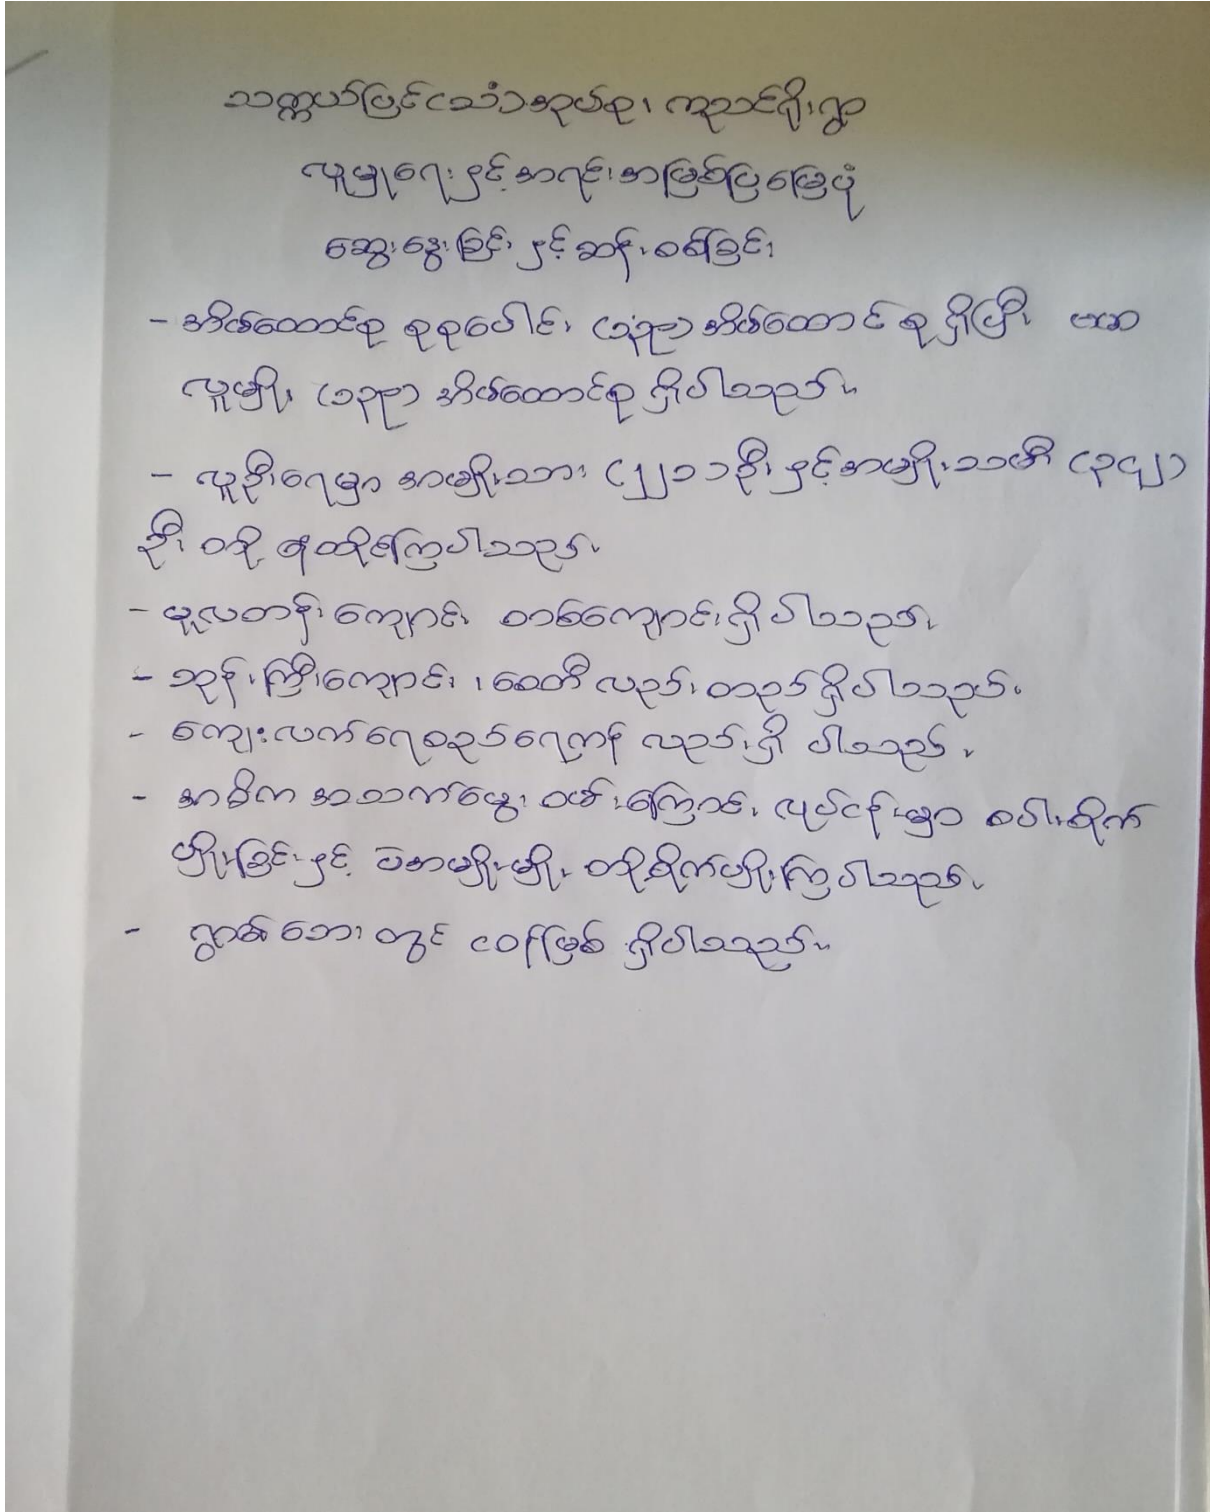 သက္ကယ်ပြင်(သံ)အုပ်စု၊ ကုသင်ရိုးရွာ
လူမှုရေးနှင့်အရင်းအမြစ်ပြမြေပုံ
ဆွေးနွေးခြင်းနှင့်ဆန်းစစ်ခြင်း
- အိမ်ထောင်စု စုစုပေါင်း (၁၃၉) အိမ်ထောင်စု ရှိပြီး ဗမာ
လူမျိုး (၁၃၉) အိမ်ထောင်စု ရှိပါသည်။
- လူဦးရေမှာ အမျိုးသား (၂၂၁)ဦးနှင့်အမျိုးသမီး (၃၄၂)
ဦး တို့ နေထိုင်ကြပါသည်။
- မူလတန်းကျောင်း တစ်ကျောင်းရှိပါသည်။
- ဘုန်းကြီးကျောင်း၊ စေတီလည်း တည်ရှိပါသည်။
- ကျေးလက်ရေစည်ရေကန် လည်းရှိ ပါသည်။
- အဓိက အသက်မွေးဝမ်းကြောင်း လုပ်ငန်းမှာ စပါးစိုက်
ပျိုးခြင်းနှင့် ပဲအမျိုးမျိုး တို့စိုက်ပျိုးကြပါသည်။
- ရွာ၏ဘေးတွင် ငဝန်မြစ် ရှိပါသည်။